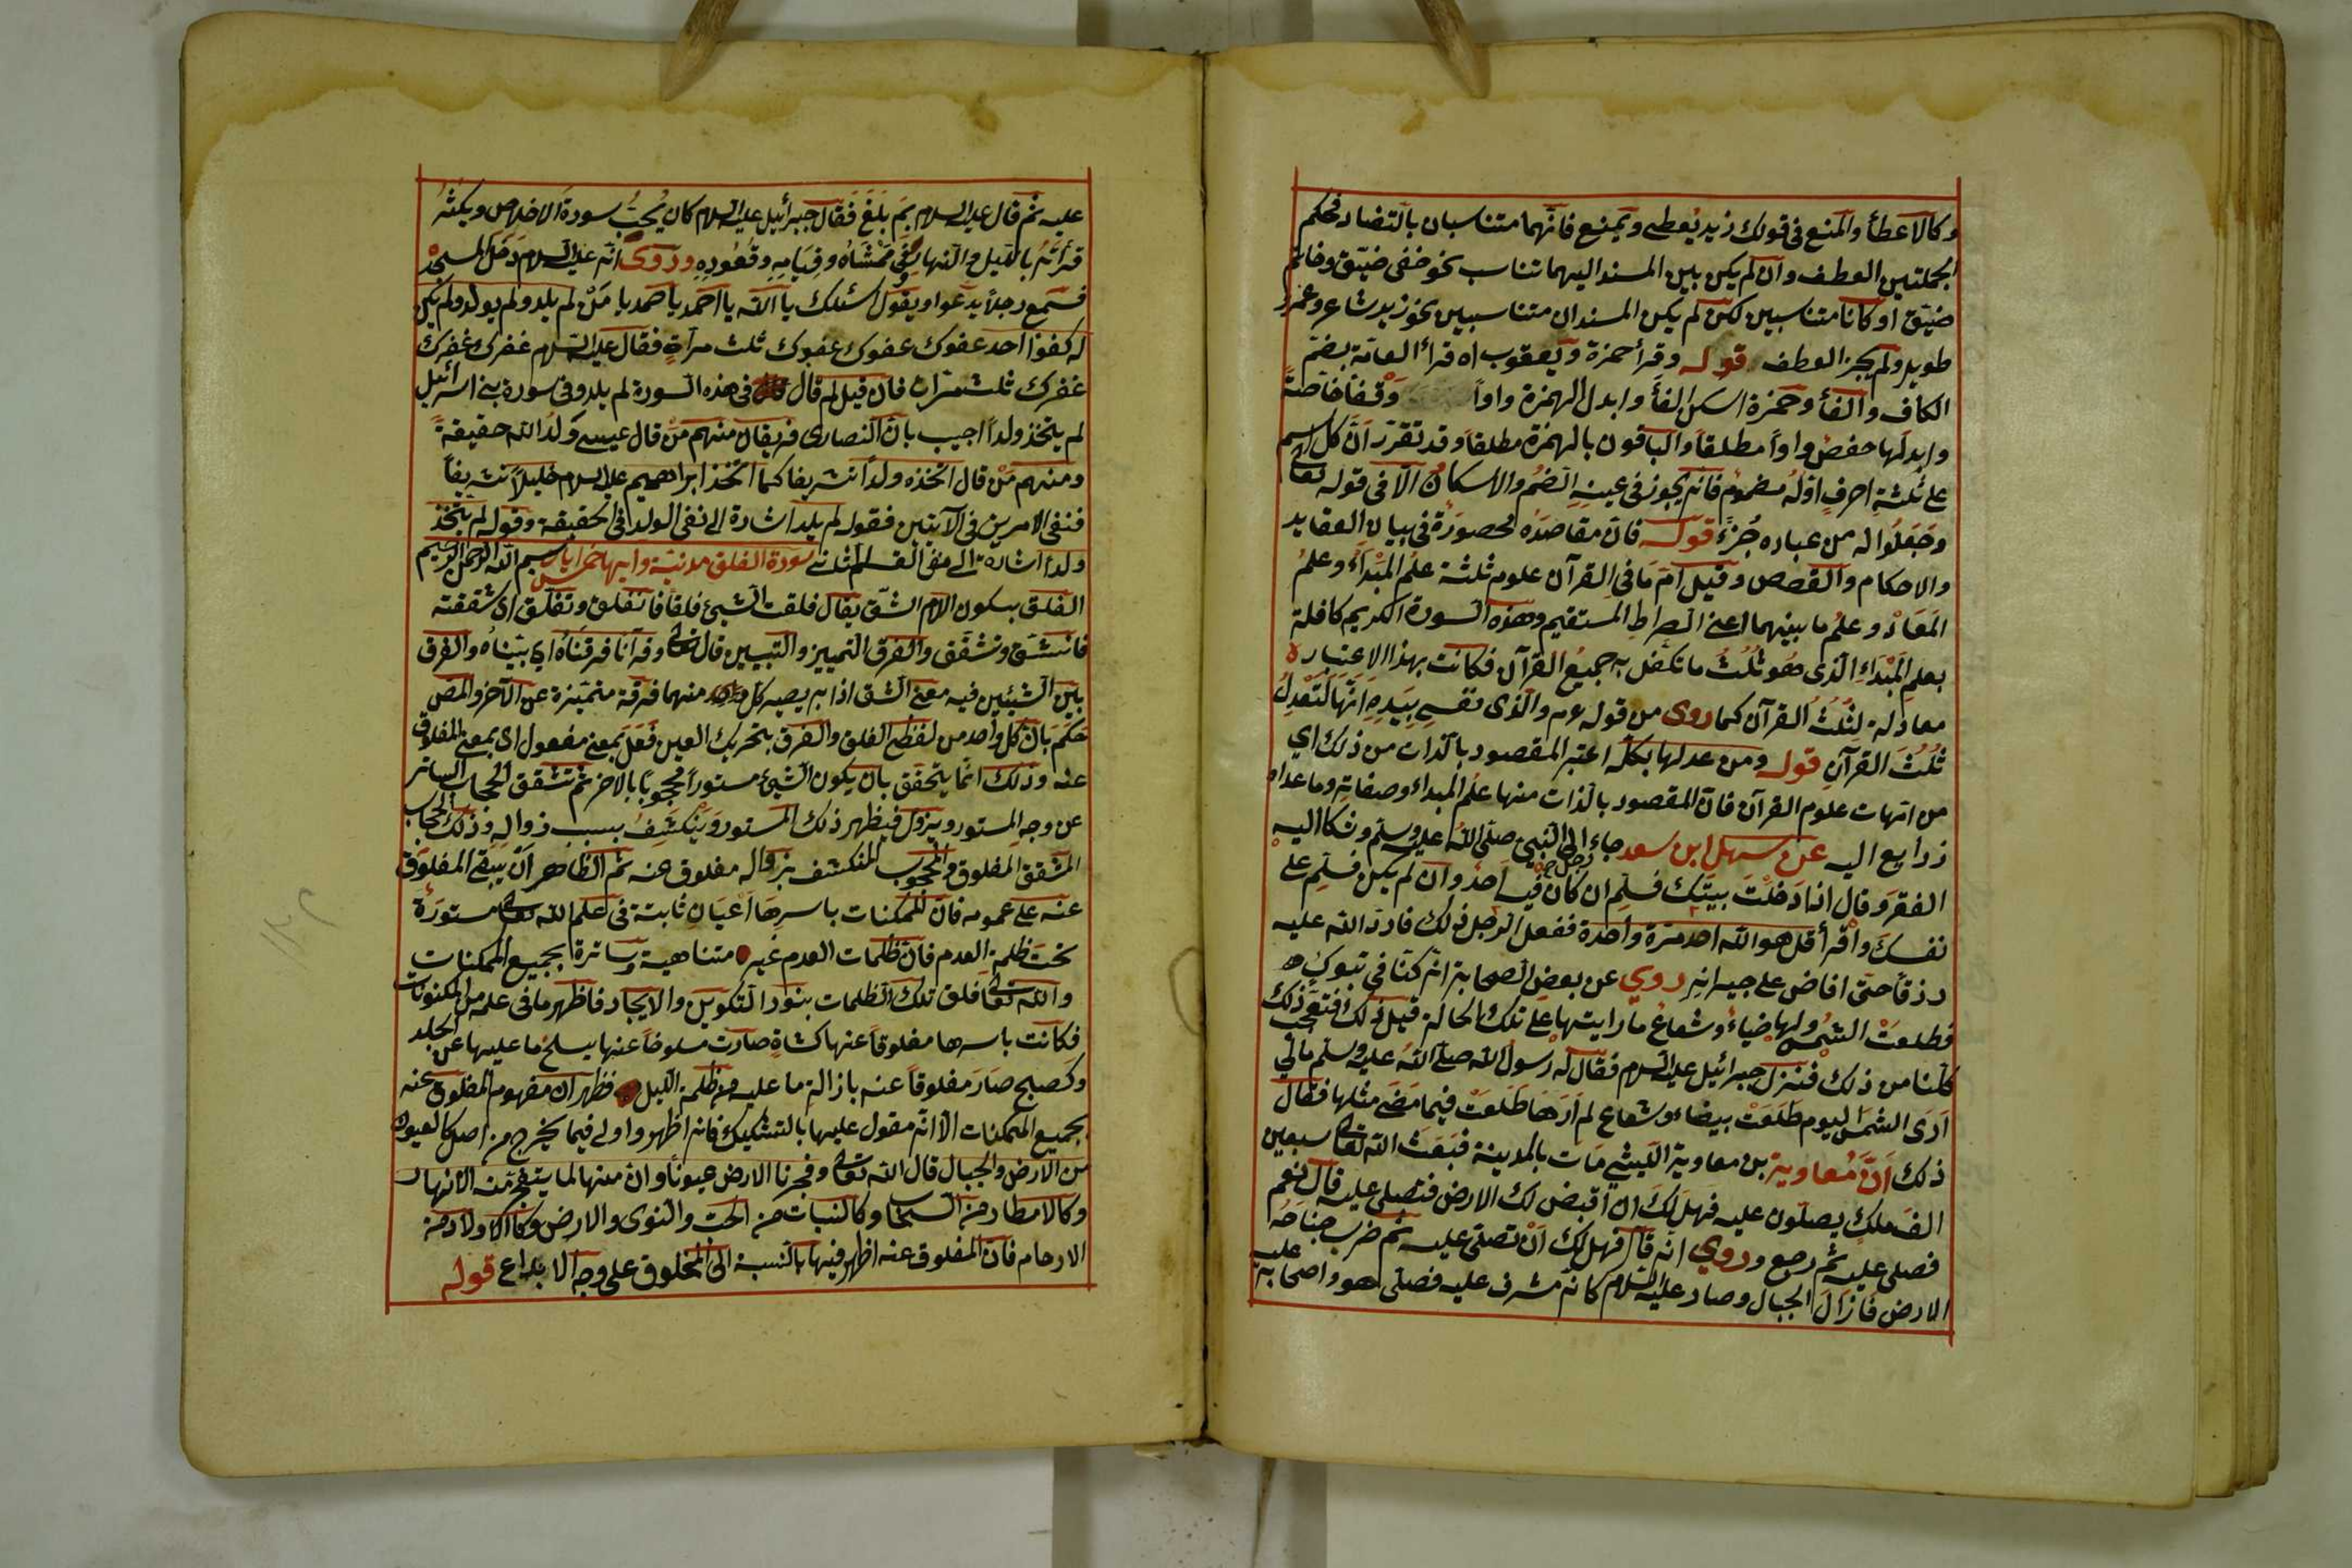 وكالاعطأ والمنع فى قولك زيد يُعطى ويمنع فانّهما متناسبان بالتضاد فحكم
الجملتين العطف وان لم يكن بين المسند اليهما تناسب نحو خفى ضيّق وخاتم
ضيّق او كانا متناسبين لكن لم يكن المسندان متناسبين نحو زيد شاعر وعمرو
طويل ولم يجز العطف قوله وقرأ حمزة ويعقوب اه قرأ العامّة بضم
الكاف والفأ وحمزة اسكن الفأ وابدل الهمزة واواً وَقْفاً خاصّةً
وابدلها حفصٌ واواً مطلقاً والباقون بالهمزة مطلقاً وقد تقرّر انّ كل اسم
على ثلثةِ احرفٍ اوّلُه مضموم فانّه يجوز فى عينِهِ الضمُ والاسكانُ الّا فى قوله تعالى
وجَعَلُوا له من عباده جُزءً قوله فانّ مقاصدَه محصورَةٌ فى بيان العقايد
والاحكام والقصص وقيل انّ مَا فى القرآن علوم ثلثة علمُ المَبْدَاءِ وعلمُ
المَعَادْ وعلمُ ما بينهما اعنى الصراطِ المستقيم وهذه السورة الكريم كافلة
بعلمِ المَبْدَاءِ الّذى هو ثُلُثُ ما تكفل به جميعُ القرآن فكانت بهذا الاعتبار
معادَلة لِثُلُثُ القرآن كما روى من قوله عم والّذى نفسى بِيَدِهِ انّها لَتَعْدِلُ
ثُلُثَ القرآنِ قوله ومن عدلها بكلّه اعتبر المقصود بالذات من ذلك اى
من امّهات علوم القرآن فانّ المقصود بالذات منها علم المبداء وصفاته وما عداه
ذرايع اليه عن سهل ابن سعد جاء رجل الى النّبى صلّى اللّه عليه وسلم وشكا اليه
الفقر وقال اذا دَخلْتَ بيتَكَ فسَلِّم ان كان فيه اَحدٌ وان لم يكن فسَلِّم على
نفسكَ واقرأ قل هو اللّه احد مرّة واحدة ففعل الرّجل ذلك فادرّ اللّه عليه
رزقاً حتّى افاض على جيرانِه روي عن بعض الصحابة انّه كنّا فى تبوكٍ
فطلعَتْ الشّمس ولها ضياءٌ وشعاعٌ ما رايتها على تلك الحالة قبل ذلك فتعجّب
كلّنا من ذلك فنزل جبرائيل عليه السلام فقال له رسول اللّه صلّى اللّه عليه وسلم مالى
اَرَى الشّمسَ اليوم طلعَتْ بيضاء وشعاع لم اَرَهَا طَلَعَتْ فيما مَضَى مثلها فقال
ذلك اَنَّ مُعاوية بن معاوية الليثى مَات بالمدينة فبَعَثَ اللّه تعالى سبعين
الفَ ملكٍ يصلّون عليه فهَل لكَ ان اقبض لك الارض فتصلى عليه قال نعم
فصلى عليه ثم رجع وروي انّه قال فهل لك اَنْ تصلى عليه ثم ضرب جناحَه عليه
الارض فَازالَ الجبال وصار عليه السلام كانّه مشرف عليه فصلّى هو واصحابه
عليه ثم قال عليه السلام بِمَ بَلَغَ فَقال جبرائيل عليه السلام كان يُحبُّ سورةَ الاخلاص ويكثر
قرأته بالليل والنهار فى مَمْشَاهُ وقِيَامِهِ وقُعُودِهِ وروى انّه عليه السلام دَخَلَ المسجد
فسمع رجلاً يدعوا ويقول اسئلك يا اللّه يا احد يا صمد يا مَنْ لم يلد ولم يولد ولم يكن
له كفوا احد عفوك عفوك عفوك ثلث مرّاتٍ فقال عليه السلام غفرك غفرك
غفرك ثلث مرّات فان قيل لم قال فى هذه السّورة لم يلد وفى سورة بنى اسرائيل
لم يتّخذ ولداً اجيب بانّ النصارى فريقان منهم مَنْ قال عيسى وَلَدُ اللّه حقيقةً
ومنهم مَنْ قال اتّخذه ولداً تشريفا كما اتّخذ ابراهيم عليه السلام خليلاً تشريفاً
فنفى الامرين فى الآيتين فقوله لم يلد اشارة الى نفى الولد فى الحقيقة وقوله لم يتّخذ
ولداً اشارة الى نفى القسم الثانى سورة الفلق مدنيّة وايها خمس ايات بسم اللّه الرحمن الرحيم
الفلق بسكون اللام الشقّ يقال فلقت الشئ فلقاً فانفلق وتفلّق اى شققته
فانشقّ وتشقّق والفرق التمييز والتبيين قال تعالى وقرآنا فرقناهُ اى بيّناهُ والفرق
بين الشيئين فيه معنى الشق اذ به يصير كل واحد منهما فرقة متميّزة عن الآخر والمص
حكم بانّ كل واحد من لفظى الفلق والفرق بتحريك العين فَعَل بمعنى مفعول اى بمعنى المفلوق
عنه وذلك انّما يتحقق بان يكون الشئ مستوراً محجوباً بالاخر ثم تتشقق الحجاب الساتر
عن وجه المستور ويزول فيظهر ذلك المستور ويَنْكشِفُ بسبب زواله وذلك الحجاب
المشقق المفلوق والمحجوب المنكشف بزواله مفلوق عنه ثم الظاهر اَنّ يبقى المفلوق
عنه على عمومه فانّ الممكنات باسرِهَا اَعْيَان ثابتة فى علم اللّه تعالى مستورَةٌ
تحت ظلمة العدم فانّ ظلمات العدم غير متناهية وساترة بجميع الممكنات
واللّه تعالى فلق تلك الظلمات بنور التكوين والايجاد فاظهر ما فى علمه من المكنونات
فكانت باسرها مفلوقاً عنها كشاةٍ صارت مسلوخاً عنها يسلخ ما عليها عن الجلد
وكصبح صَارَ مفلوقاً عنه بازالة ما عليه من ظلمة الليل فظهر ان مفهوم المفلوق عنه
بجميع الممكنات الّا انّه مقول عليها بالتشكيك فانه اظهر واولى فيما يخرج من اصل كالعيون
من الارض والجبال قال اللّه تعالى وفجرنا الارض عيوناً وان منها لما يتفجّر منه الانهار
وكالامطار من السحاب وكالنبات من الحَبّ والنوى والارض وكالاولاد من
الارحام فانّ المفلوق عنه اظهر فيها بالنسبة الى المخلوق على وجه الابداع قوله